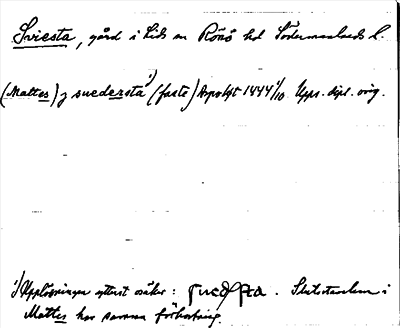 Sviesta, gård i Lids sn Rönö hd Södermanlands l.
(Mattes) j suedersta 1) (faste) Aspolyst 1444 1/10 Upps. dipl. orig.
1) Upplösningen ytterst osäker: sued sta. Slutstavelsen i
Mattes har samma förkortning.